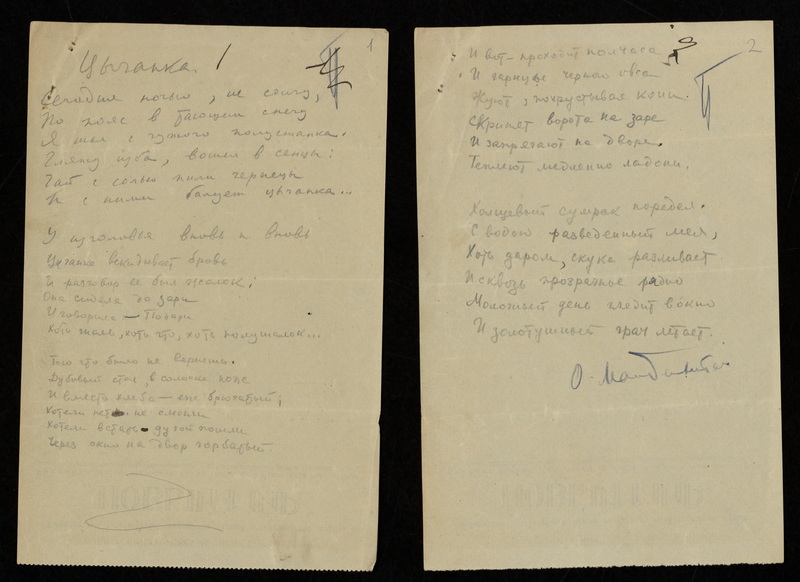 1
Цыганка.
Сегодня ночью, не солгу,
По пояс в тающем снегу
Я шел с чужого полустанка.
Гляжу изба, вошел в сенцы:
Чай с солью пили чернецы
И с ними балует цыганка...
У изголовья вновь и вновь
Цыганка вскидывает бровь
И разговор ее был жалок:
Она сидела до зари
И говорила — Подари
Хоть шаль, хоть что, хоть полушалок...
Того что было не вернешь.
Дубовый стол, в солонке нож
И вместо хлеба — еж брюхатый;
Хотели петь и не смогли
Хотели встать дугой пошли
Через окно на двор горбатый.
2
И вот — проходит полчаса
И гарнцы черного овса
Жуют, похрустывая кони.
Скрипят ворота на заре
И запрягают на дворе.
Теплеют медленно ладони.
Холщевый сумрак поредел.
С водою разведенный мел,
Хоть даром, скука разливает
И сквозь прозрачное рядно
Молочный день глядит в окно
И золотушный грач летает.
О. Мандельштам